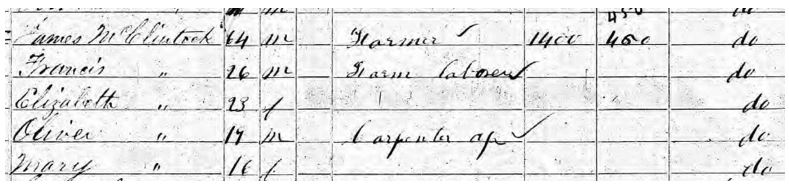 450
James McClintock 64 m Farmer ✓ 1400 450 do
Francis " 26 m Farm laborer ✓ do
Elizabeth " 23 f do
Oliver " 17 m Carpenter ap ✓ do
Mary " 16 f do